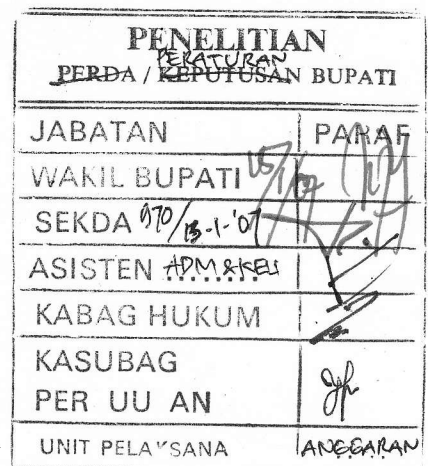 PENELITIAN
PERATURAN
PERDA / KEPUTUSAN BUPATI
JABATAN PARAF
WAKIL BUPATI 15/1/07
SEKDA 970/13-1-'07
ASISTEN ADM & KEU
KABAG HUKUM
KASUBAG
PER UU AN
UNIT PELAKSANA ANGGARAN